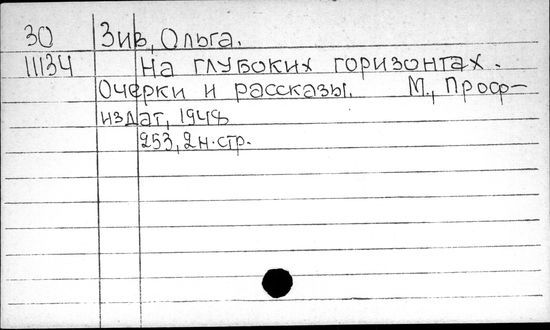 30 Зив, Ольга.
11134 На глубоких горизонтах.
Очерки и рассказы. М., Проф-
издат, 1948
253, 2 н. стр.